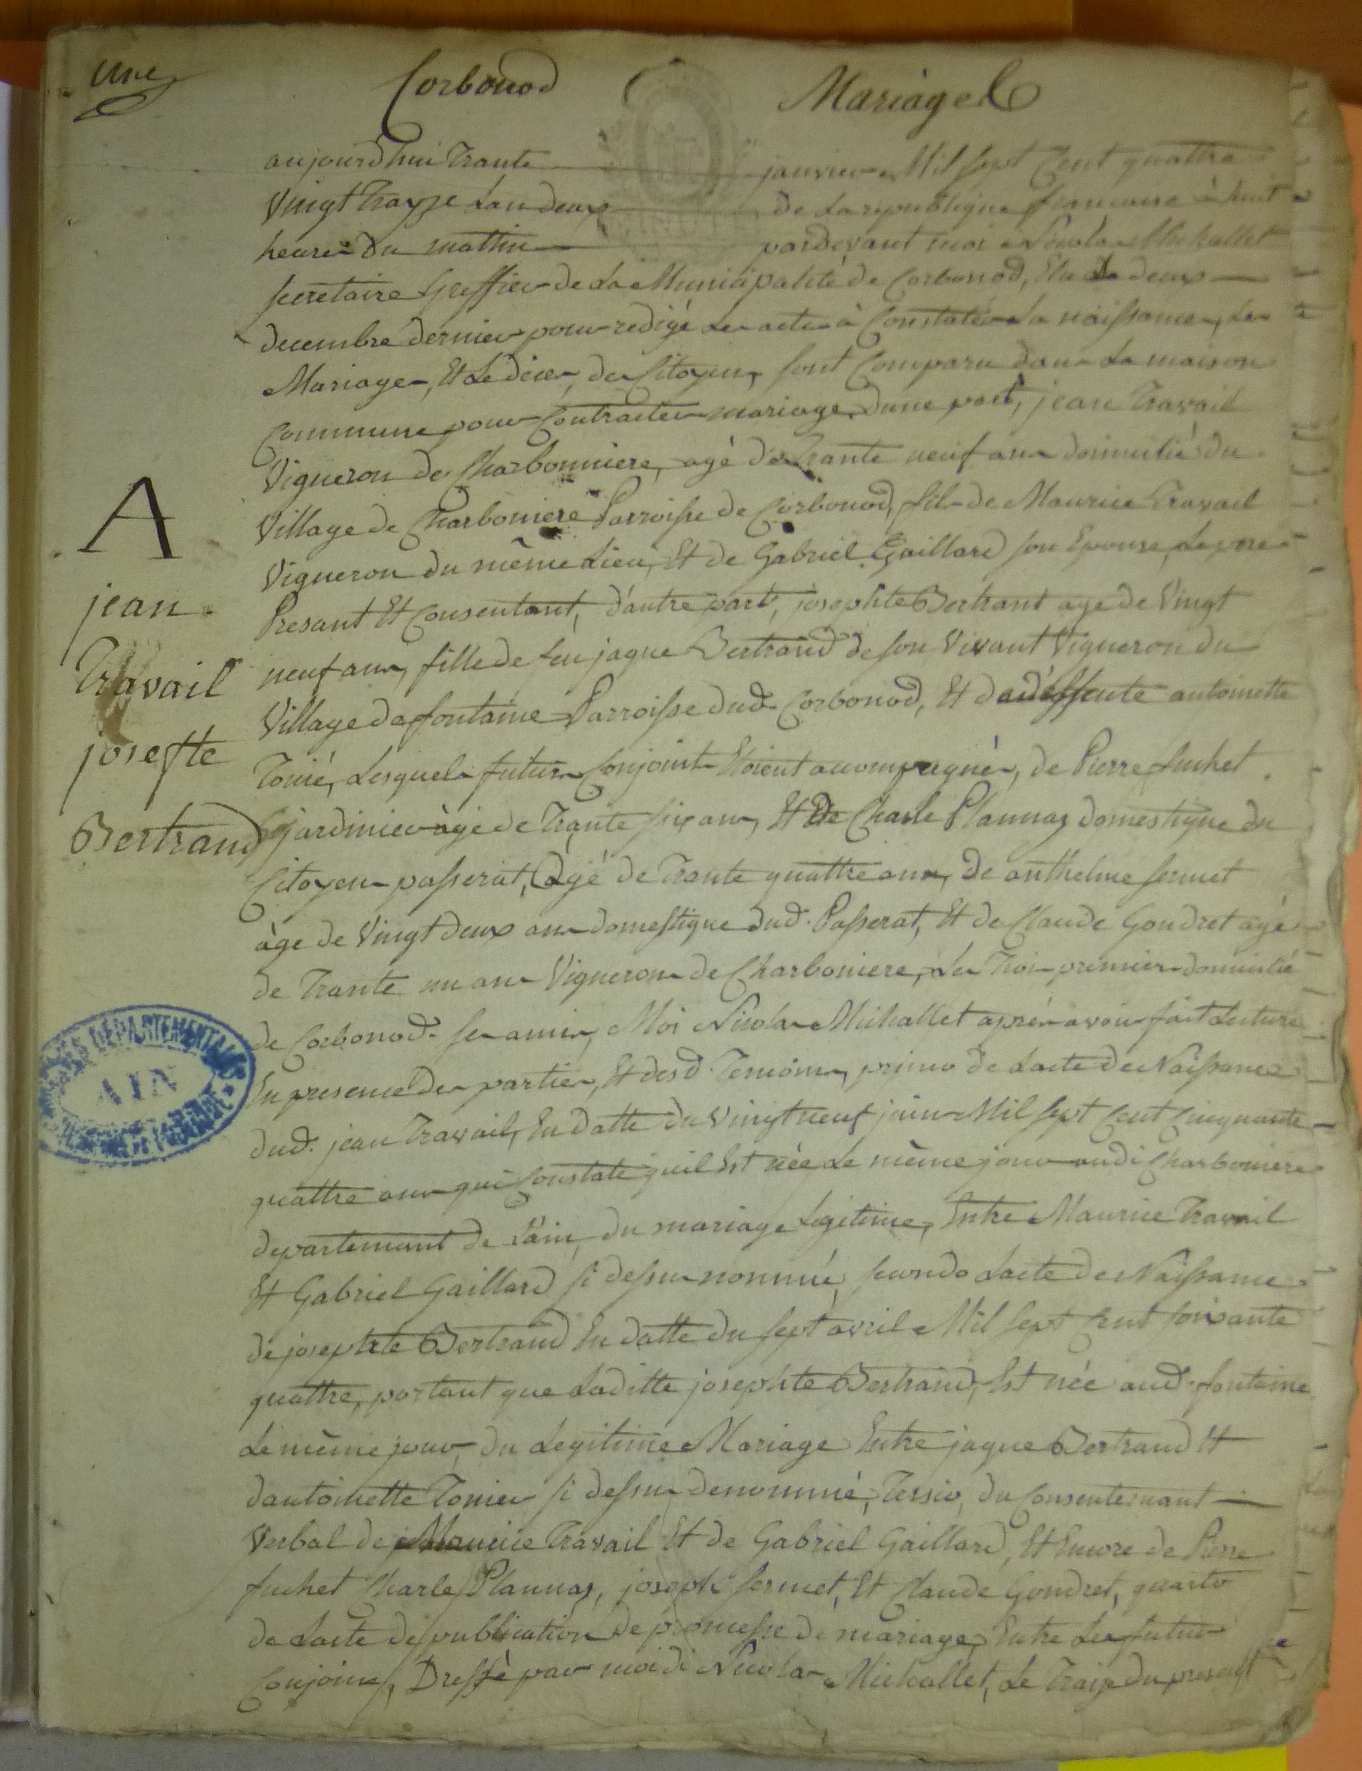 une
Corbonod Mariage
aujourdhui Trante janvier Mil sept Cent quattre
Vingt Trayze L'an deux de La republique francaise à huit
heure du mattin pardevant moi Nicola Michallet
secretaire Greffier de La Municipalité de Corbonod, Elu Le deux
decembre dernier pour redigé Les acte à Constater La naissance, Le
Mariage, Et Le déces, des Citoyens, sont Comparu dans La maison
Commune pour Contracter mariage, dune part, jean Travail
Vigneron de Charbonniere, agé de Trante neuf ans domicilié du
Village de Charboniere Parroisse de Corbonod, fils de Maurice Travail
Vigneron du même Lieu, Et de Gabriel Gaillard son Epouse, Le pere
Presant Et Consentant, d'autre part, josephte Bertrant age de Vingt
neuf ans, fille de feu jaque Bertrand de son Vivant Vigneron du
Village de fontaine Parroisse dud. Corbonod, Et de deffente antoinette
Tonié, Lesquels futurs Conjoint Etoient accompagnés, de Pierre fuchet
jardinier àgé de Trante six ans, Et de Charle Plannaz domestique du
Citoyen passerat, Agé de Trante quattre ans, de anthelme sermet
àge de Vingt deux ans domestique dud. Passerat, Et de Claude Gondret agé
de Trante un ans Vigneron de Charboniere, Les Troi premier domicilié
de Corbonod. ses amis, Moi Nicola Michallet après avoir fait Lecture
En presence des parties, Et desd. Temoins, primo de Lacte de Naissance
dud. jean Travail, En datte du Vingt neuf juin Mil sept Cent Cinquante
quattre ans qui Constate quil Est née Le même jour audi Charboniere
departemant de L'ain, du mariage Legitime, Entre Maurice Travail
Et Gabriel Gaillard si dessu nommé, secondo Lacte de Naissance
de josephte Bertrand En datte du sept avril Mil sept Cent soixante
quattre, portant que Laditte josephte Bertrand, Est née aud. fontaine
Le même jour, du Legitime Mariage Entre jaque Bertrand Et
dantoinette Tonier si dessu denommé, Tersio, du Consentemant
Verbal de Maurice Travail Et de Gabriel Gaillard, Et Encore de Pierre
fuchet Charle Plannaz, joseph sermet, Et Claude Gondret, quarto
de Lacte de publication de promesse de mariage, Entre Les futur
Conjoins, Dressé par moi di Nicola Michallet, Le Traize du presant
A
jean
Travail
josefte
Bertrand
DEPARTEMENTALES
AIN